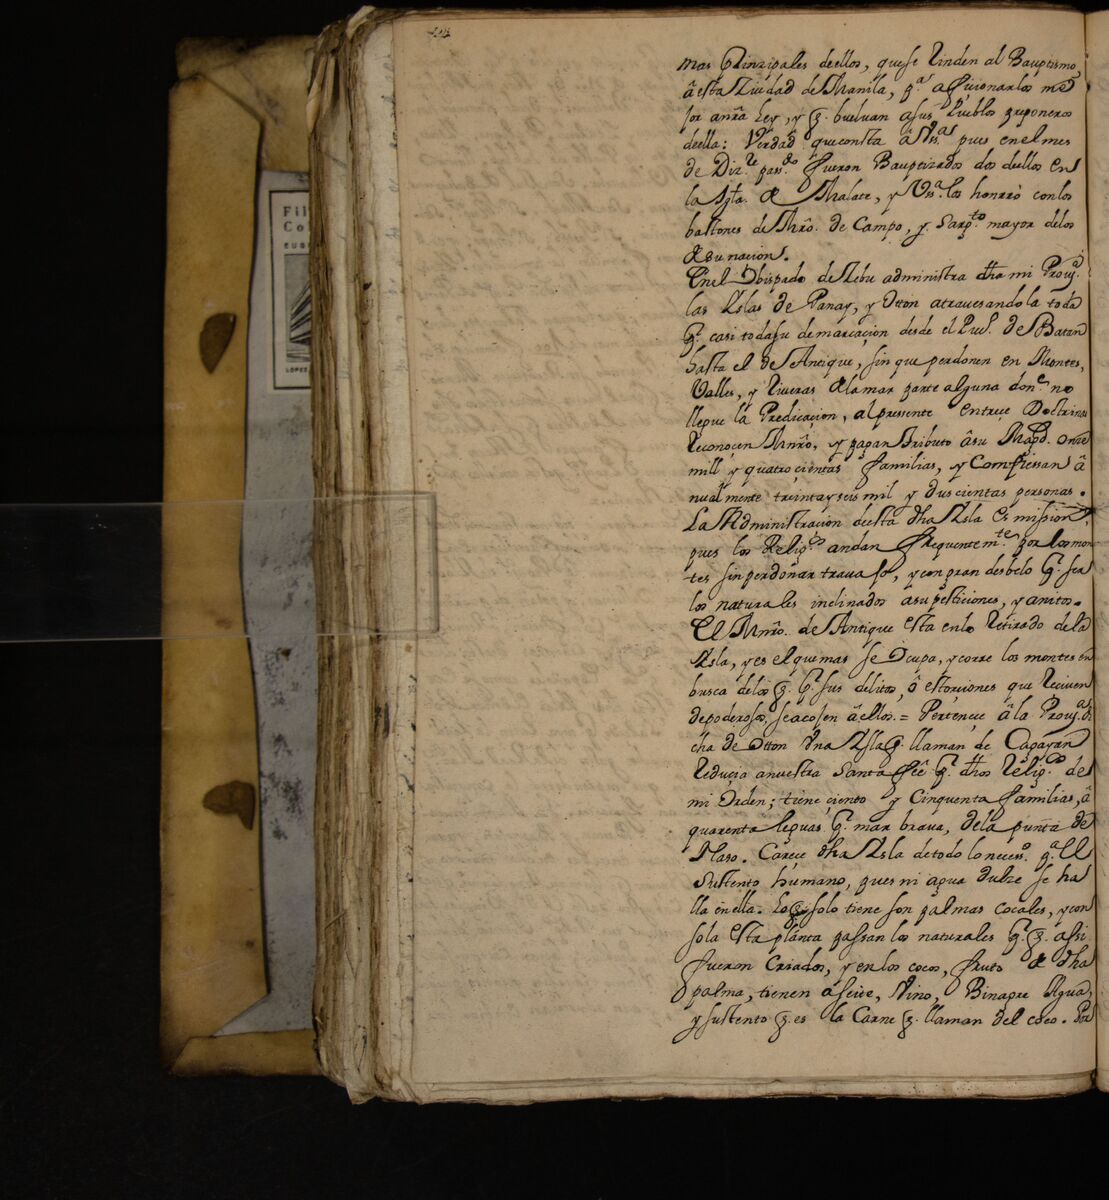 mas Prinzipales deellos, quese Rinden al Bauptismo,
â esta Ziudad de Manila, pª afficionarlos me
jor anrâ Ley, y q. buelvan asus Pueblos preponeros
deella: Verdad que consta â Vsª pues en el mes
de Dizre passdo fueron Bauptizados dos deellos en
la Igla. de Malate, y Vsª. los honrrò con los
bastones de Mrô. de Campo, y Sargto mayor delos
de su nacion.
En el Obispado de Zebu administra dha mi Provª
las Yslas de Panay, y Otton atravesandola toda
Pr. casi toda su demarcaçion desde el Puel. de Batan
hasta el de Antique, sin que perdonen en Montes,
Valles, y Riveras de la mar parte alguna donde no
llegue la Predicaçion, al pressente en treçe Doctrinas
Reconoçen Mnrô, y pagan tributo âsu Magd. onze
mill y quatrocientas familias, y Confiessan â
nualmente treinta y seis mil y duscientas personas.
La Administracion deesta dha Ysla es mission,
pues los Religos andan frequentemte por los mon
tes sin perdonar travajo, y con gran desbelo Pr. ser
los naturales inclinados asupesticiones, y anitos.
El Mnrô. de Antique esta en lo Retirado de la
Ysla, y es el que mas se Ocupa, y corre los montes en
busca delos q. Pr. sus delitos, ô estorciones que Reciven
de poderosos, se acojen â ellos. = Perteneçe â la Provª di
cha de Otton Vna Ysla q. llaman de Cagayan
Reducia a nuestra Santa Fêe Pr. dhos Religos de
mi Orden; tiene çiento y Cinquenta familias, â
quarenta leguas Pr. mar brava, dela punta de
Naso. Carece dha Ysla de todo lo necesso. pª El
Sustento humano, pues ni agua dulze se ha
lla en ella. Lo q. solo tiene son palmas cocales, y con
sola esta planta passan los naturales Pr. q. assi
fueron Criados, y en los cocos, fruto de dha
palma, tienen aseite, Vino, Binagre Agua,
y sustento q. es la Carne q. llaman del coco. Por
Fil
Co
LOPEZ